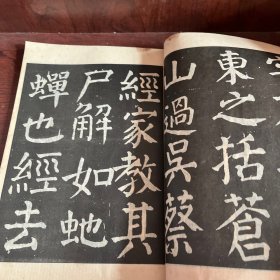 東之括蒼
山過吳蔡
經家教其
尸解如虵
蟬也經去